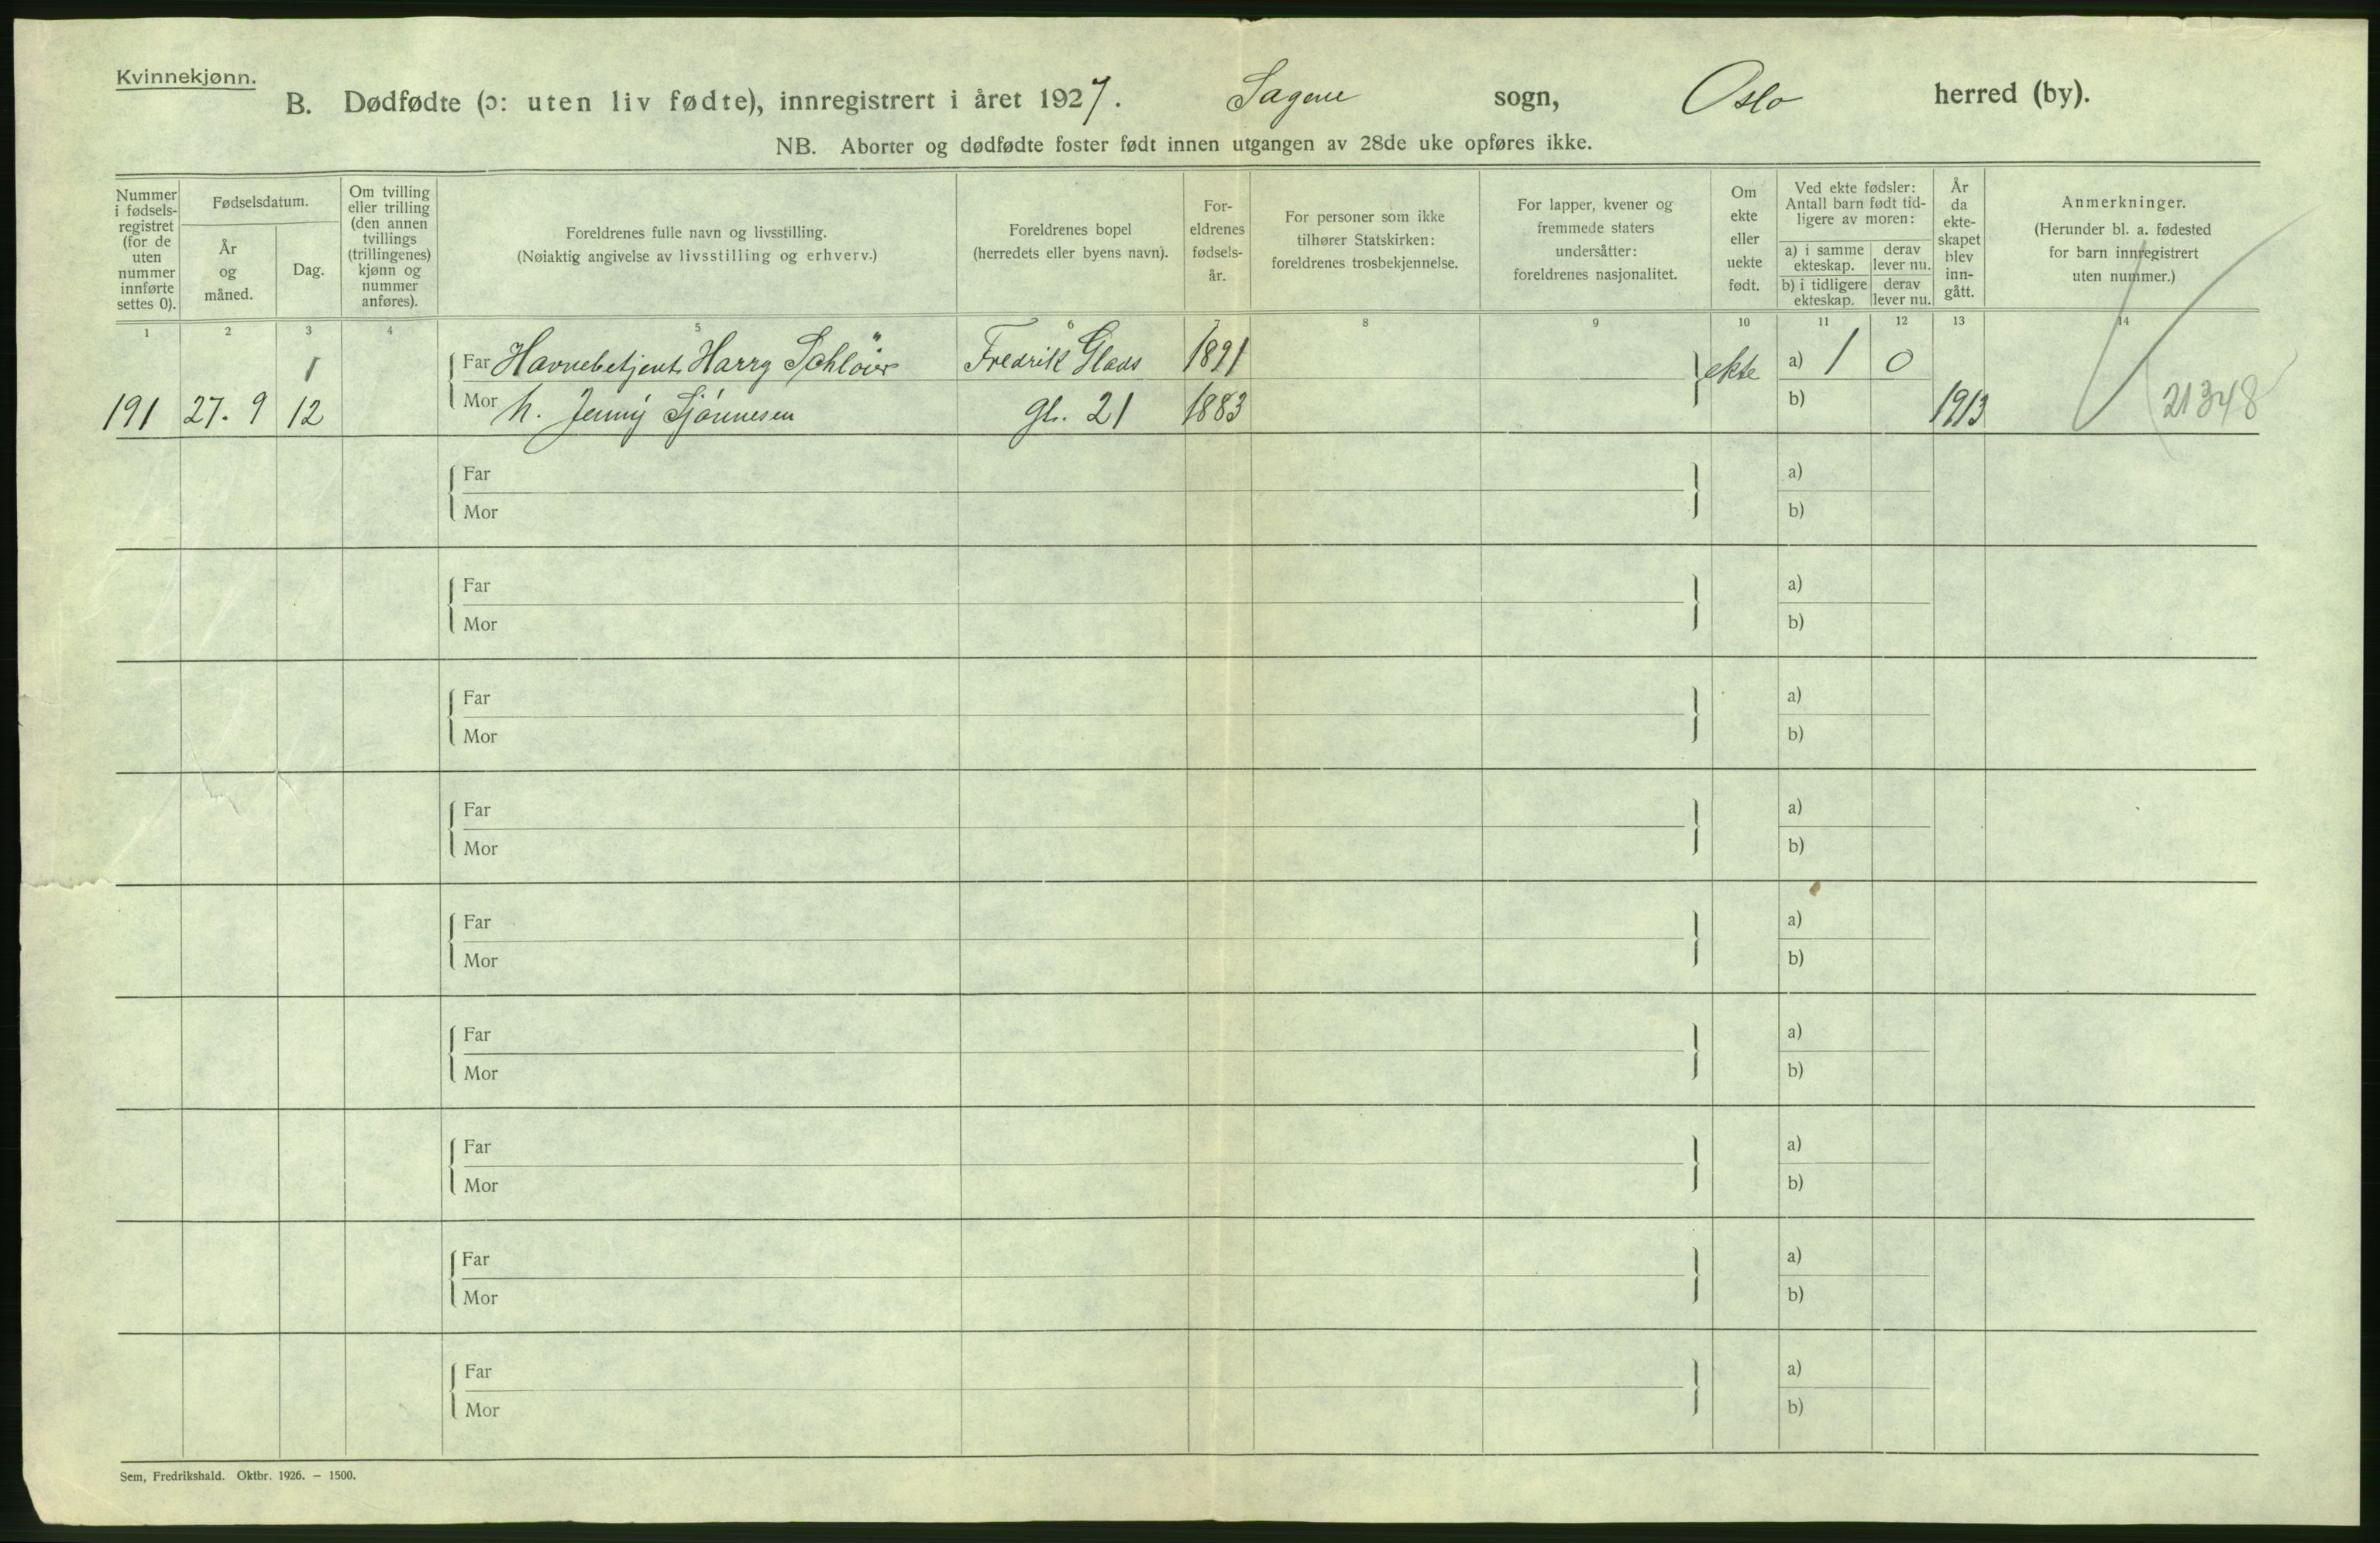 Kvinnekjønn.
B. Dødfødte (ɔ: uten liv fødte), innregistrert i året 1927. Sagene sogn, Oslo herred (by).
NB. Aborter og dødfødte foster født innen utgangen av 28de uke opføres ikke.
Nummer i fødsels-registret (for de uten nummer innførte settes 0).
Fødselsdatum.
År og måned.
Dag.
Om tvilling eller trilling (den annen tvillings (trillingenes) kjønn og nummer anføres).
Foreldrenes fulle navn og livsstilling.
(Nøiaktig angivelse av livsstilling og erhverv.)
Foreldrenes bopel
(herredets eller byens navn).
For-eldrenes fødsels-år.
For personer som ikke tilhører Statskirken: foreldrenes trosbekjennelse.
For lapper, kvener og fremmede staters undersåtter: foreldrenes nasjonalitet.
Om ekte eller uekte født.
Ved ekte fødsler: Antall barn født tid-ligere av moren:
a) i samme ekteskap.
derav lever nu.
b) i tidligere ekteskap.
derav lever nu.
År da ekte-skapet blev inn-gått.
Anmerkninger.
(Herunder bl. a. fødested for barn innregistrert uten nummer.)
1 2 3 4 5 6 7 8 9 10 11 12 13 14
1 Far Havnebetjent Harry Schlöier Fredrik Glads 1891 ekte a) 1 0
191 27. 9 12 Mor h. Jenny gt. 21 1883 b) 1913 21348
Far a)
Mor b)
Far a)
Mor b)
Far a)
Mor b)
Far a)
Mor b)
Far a)
Mor b)
Far a)
Mor b)
Far a)
Mor b)
Far a)
Mor b)
Far a)
Mor b)
Sem, Fredrikshald. Oktbr. 1926. — 1500.